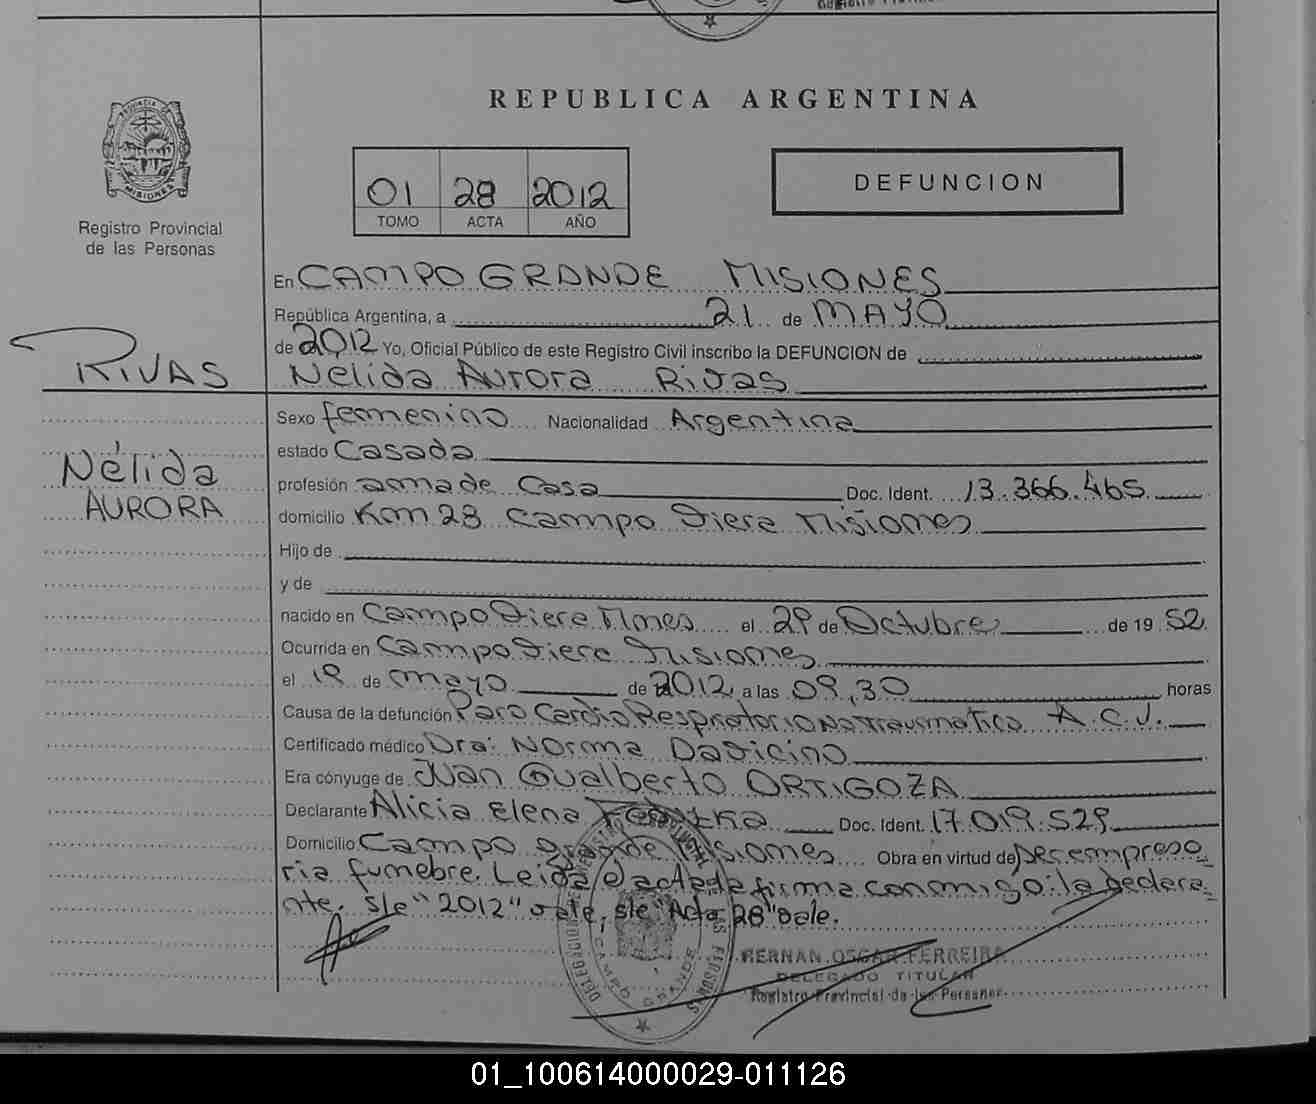 REPUBLICA ARGENTINA
PROVINCIA DE MISIONES
Registro Provincial
de las Personas
01 28 2012
TOMO ACTA AÑO
DEFUNCION
En CAMPO GRANDE MISIONES
República Argentina, a 21 de MAYO
de 2012 Yo, Oficial Público de este Registro Civil inscribo la DEFUNCION de
Nelida Aurora Rivas
RIVAS
Nélida
AURORA
Sexo femenino Nacionalidad Argentina
estado Casada
profesión ama de Casa Doc. Ident. 13.366.465
domicilio Km 28 Campo Viera Misiones
Hijo de
y de
nacido en Campo Viera Mnes el 29 de Octubre de 19 52
Ocurrida en Campo Viera Misiones
el 19 de mayo de 2012 a las 09,30 horas
Causa de la defunción Paro Cardio Respiratorio No traumatico A.C.V.
Certificado médico Dra: Norma Davicino
Era cónyuge de JUAN GUALBERTO ORTIGOZA
Declarante Alicia Elena Doc. Ident. 17.019.529
Domicilio Campo grande Misiones Obra en virtud de Ser empresa
ria fumebre. Leida el acta la firma conmigo: la declara
nte. s/e "2012" vale, s/e "Acta 28" vale.
DELEGACION REGISTRO PROVINCIAL DE LAS PERSONAS
CAMPO GRANDE
HERNAN OSCAR FERREIRA
DELEGADO TITULAR
Registro Provincial de las Personas
01_100614000029-011126